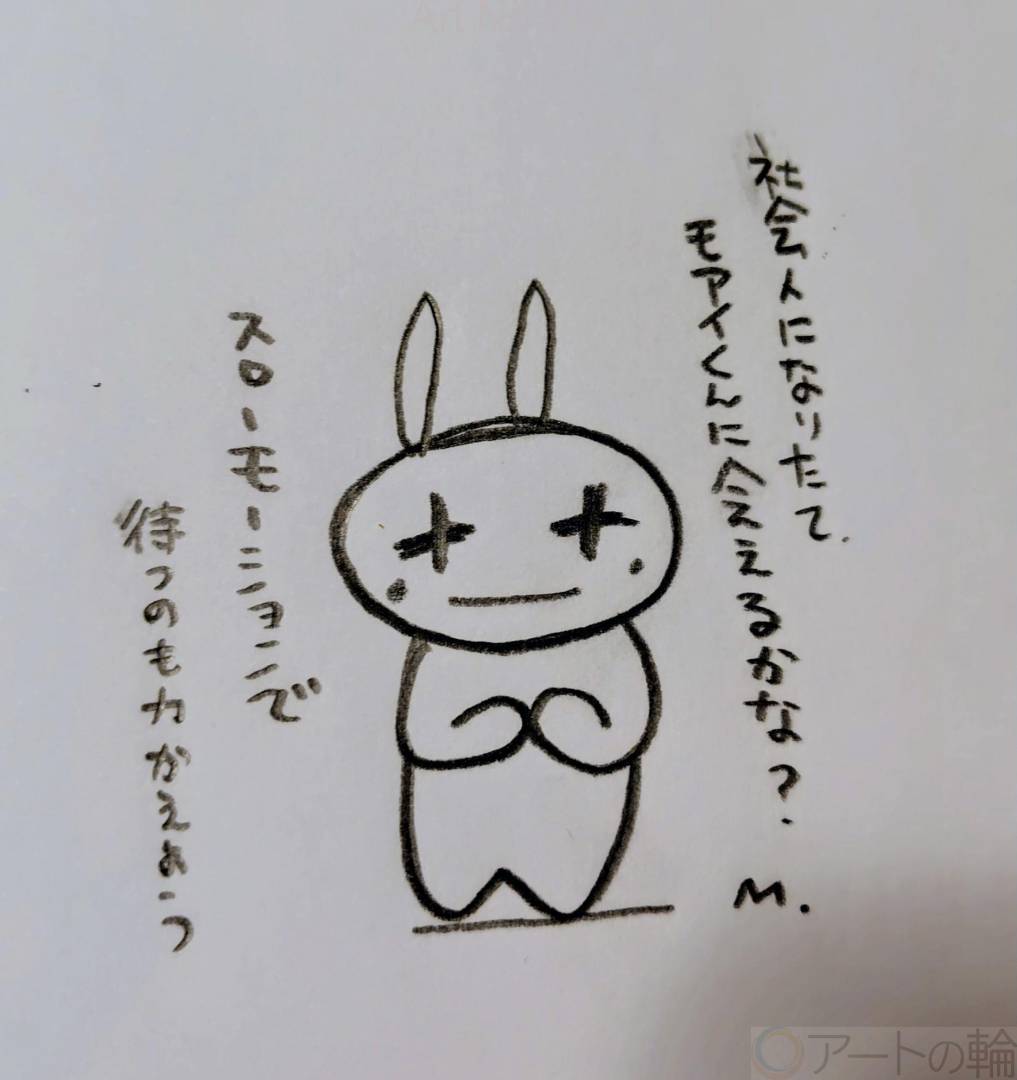 社会人になりたて.
モアイくんに会えるかな?.
M.
スローモーションで
待つのも力かえよう
アートの輪